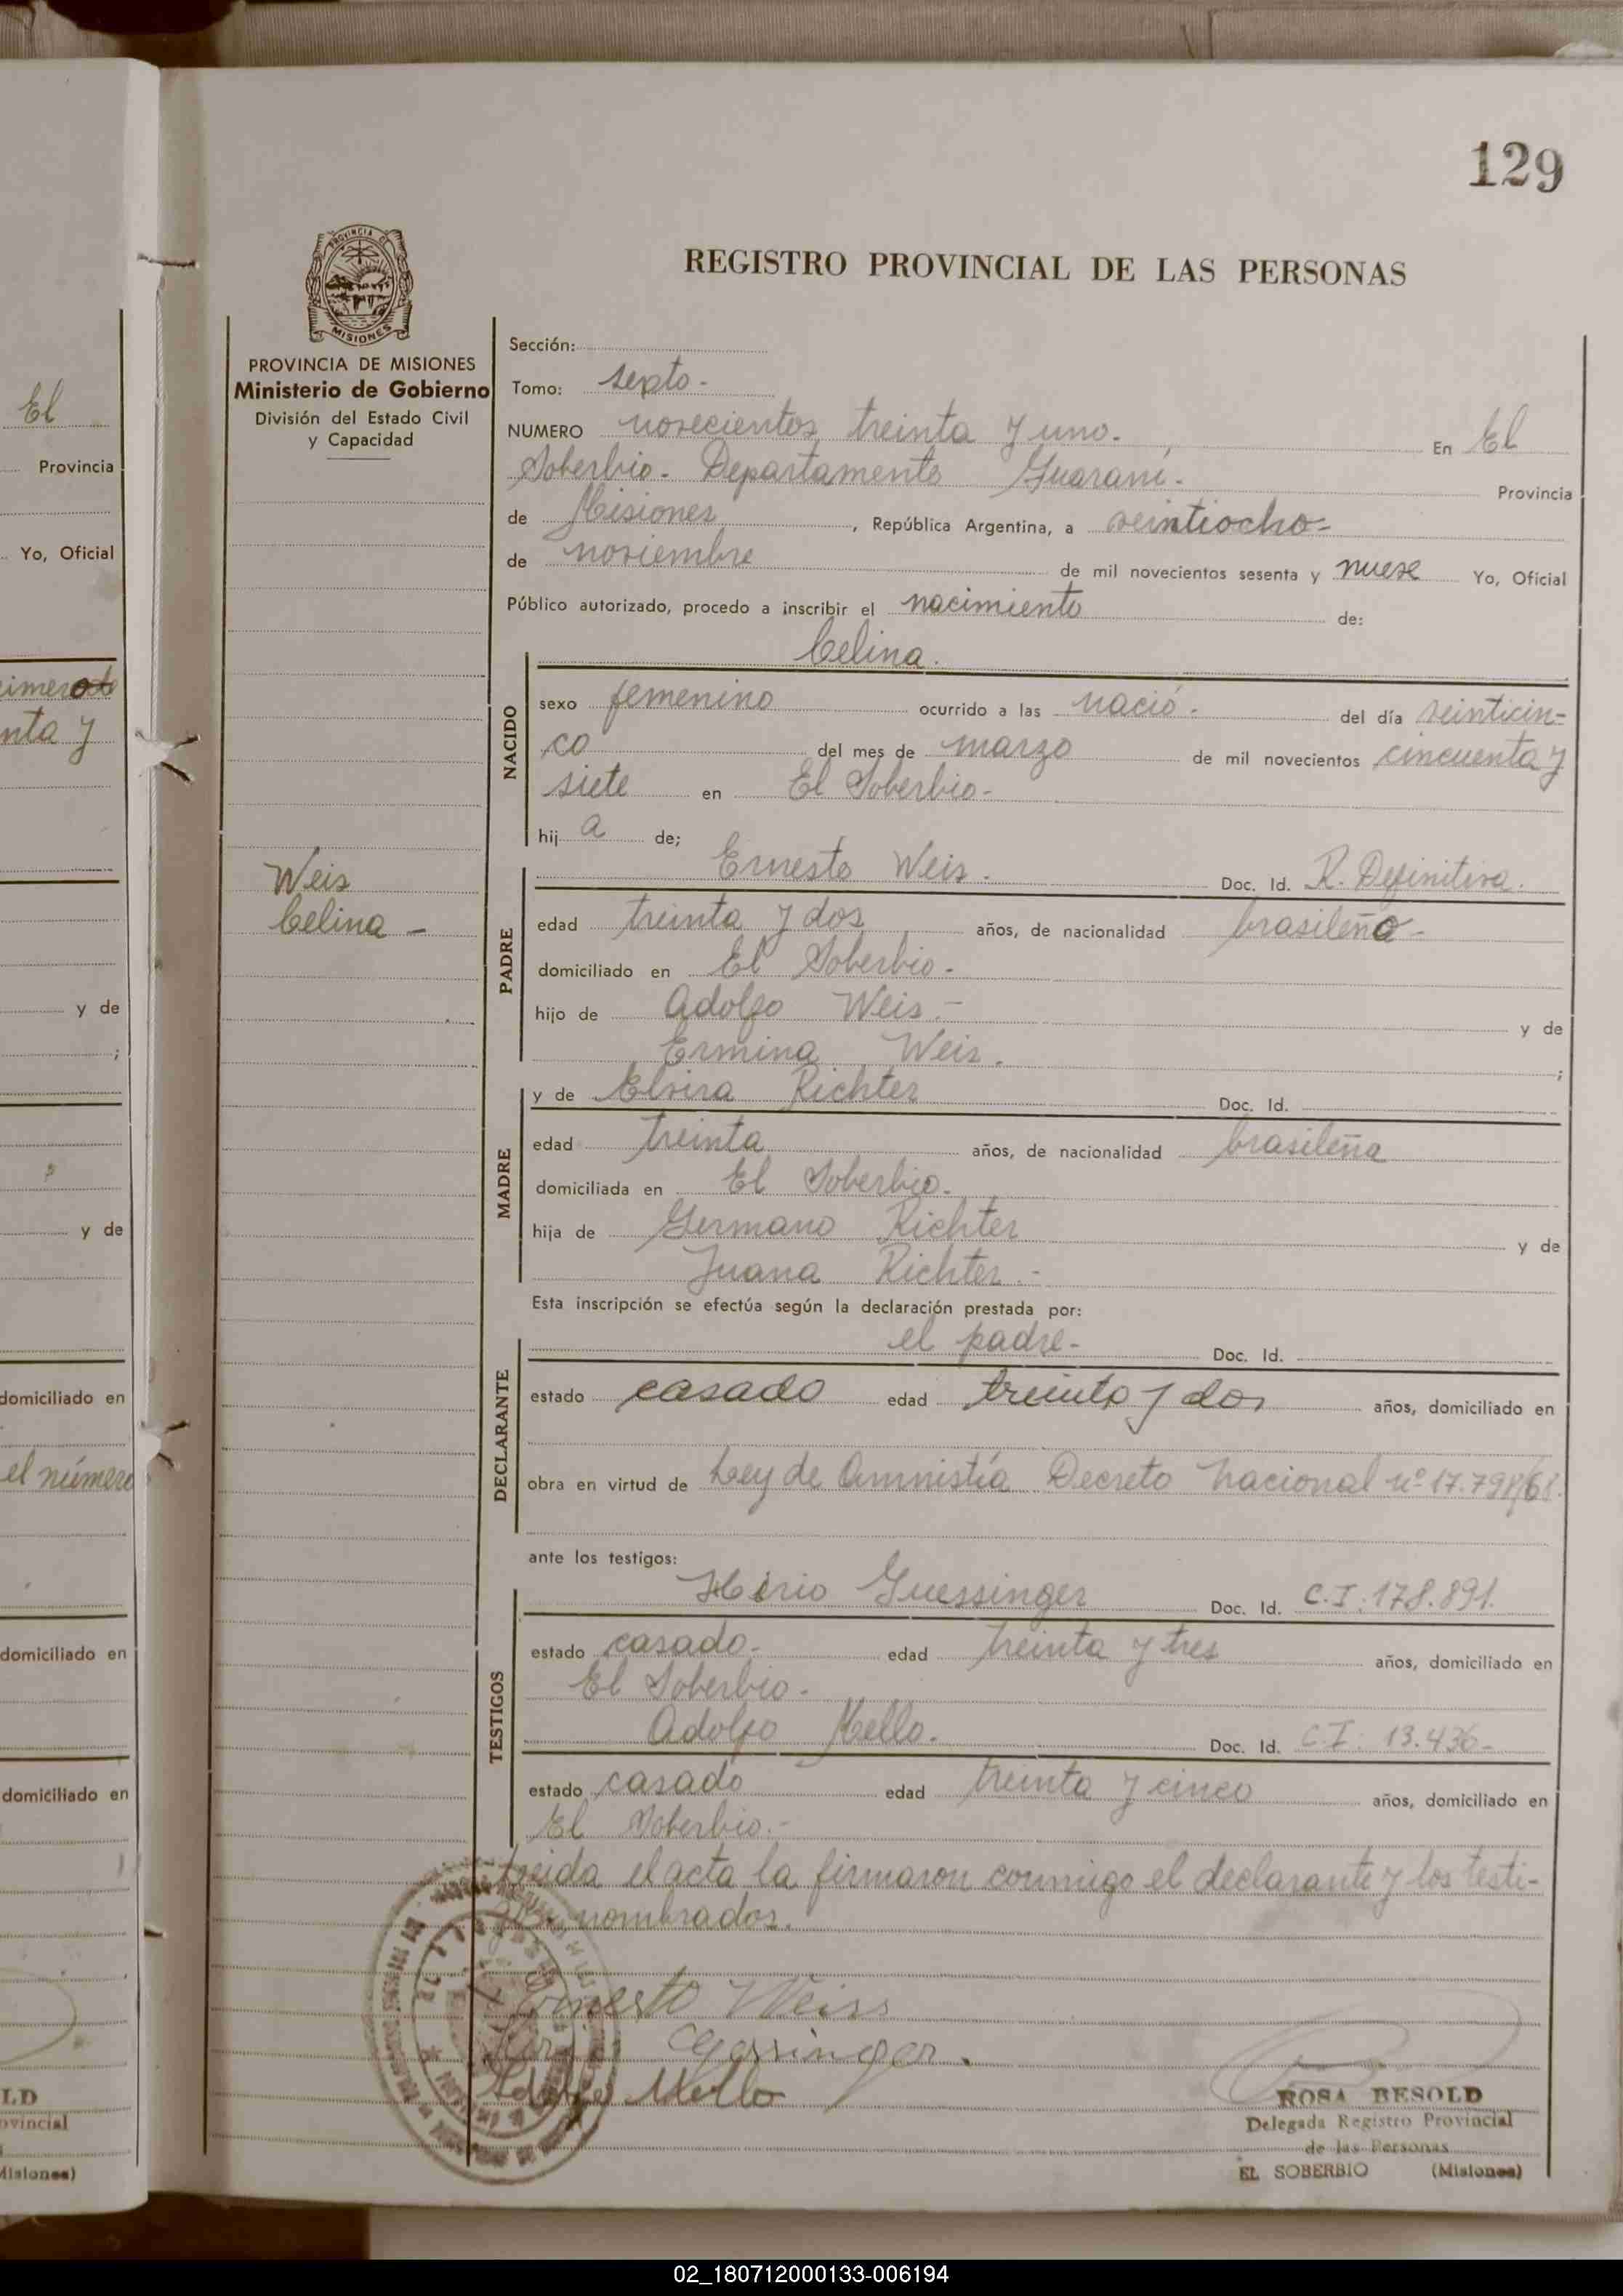 129
PROVINCIA DE
MISIONES
REGISTRO PROVINCIAL DE LAS PERSONAS
PROVINCIA DE MISIONES
Ministerio de Gobierno
División del Estado Civil
y Capacidad
Weis
Celina -
Sección:
Tomo: sexto -
NUMERO novecientos treinta y uno. En El
Soberbio - Departamento Guaraní - Provincia
de Misiones, República Argentina, a veintiocho -
de noviembre de mil novecientos sesenta y nueve Yo, Oficial
Público autorizado, procedo a inscribir el nacimiento de:
Celina.
NACIDO
sexo femenino ocurrido a las nació - del día veinticin-
co del mes de marzo de mil novecientos cincuenta y
siete en El Soberbio -
hij a de;
Ernesto Weis. Doc. Id. R. Definitiva.
PADRE
edad treinta y dos años, de nacionalidad brasileño -
domiciliado en El Soberbio -
hijo de Adolfo Weis. - y de
Ermina Weis. ;
y de Elvira Richter Doc. Id.
MADRE
edad treinta años, de nacionalidad brasileña
domiciliada en El Soberbio.
hija de Germano Richter y de
Juana Richter. -
Esta inscripción se efectúa según la declaración prestada por:
el padre - Doc. Id.
DECLARANTE
estado casado edad treinta y dos años, domiciliado en
obra en virtud de Ley de Amnistía Decreto Nacional nº 17.798/68.
ante los testigos:
Guessinger Doc. Id. C.I. 178.891.
TESTIGOS
estado casado - edad treinta y tres años, domiciliado en
El Soberbio -
Adolfo Mello. Doc. Id. C.I. 13.436 -
estado casado edad treinta y cinco años, domiciliado en
El Soberbio. -
Leida el acta la firmaron conmigo el declarante y los testi-
gos nombrados.
Ernesto Weiss
Adolfo Mello
ROSA BESOLD
Delegada Registro Provincial
de las Personas
EL SOBERBIO (Misiones)
El
Provincia
Yo, Oficial
nta y
y de
;
y de
domiciliado en
el número
domiciliado en
domiciliado en
LD
ovincial
Misiones)
02_180712000133-006194